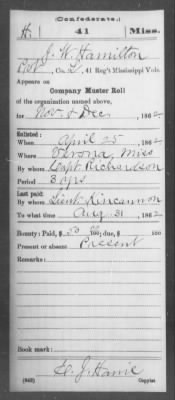 (Confederate.)
H. 41 Miss.
J. W. Hamilton
Co. L, 41 Reg't Mississippi Vols.
Appears on
Company Muster Roll
of the organization named above,
for Nov & Dec, 1862
Enlisted:
When April 25, 1862
Where Verona, Miss
By whom Capt Richardson
Period 3 yrs
Last paid:
By whom Lieut Kincannon
To what time Aug 31, 1862
Bounty: Paid, $ 50 100; due, $ 100
Present or absent Present
Remarks:
Book mark:
(642) Copyist